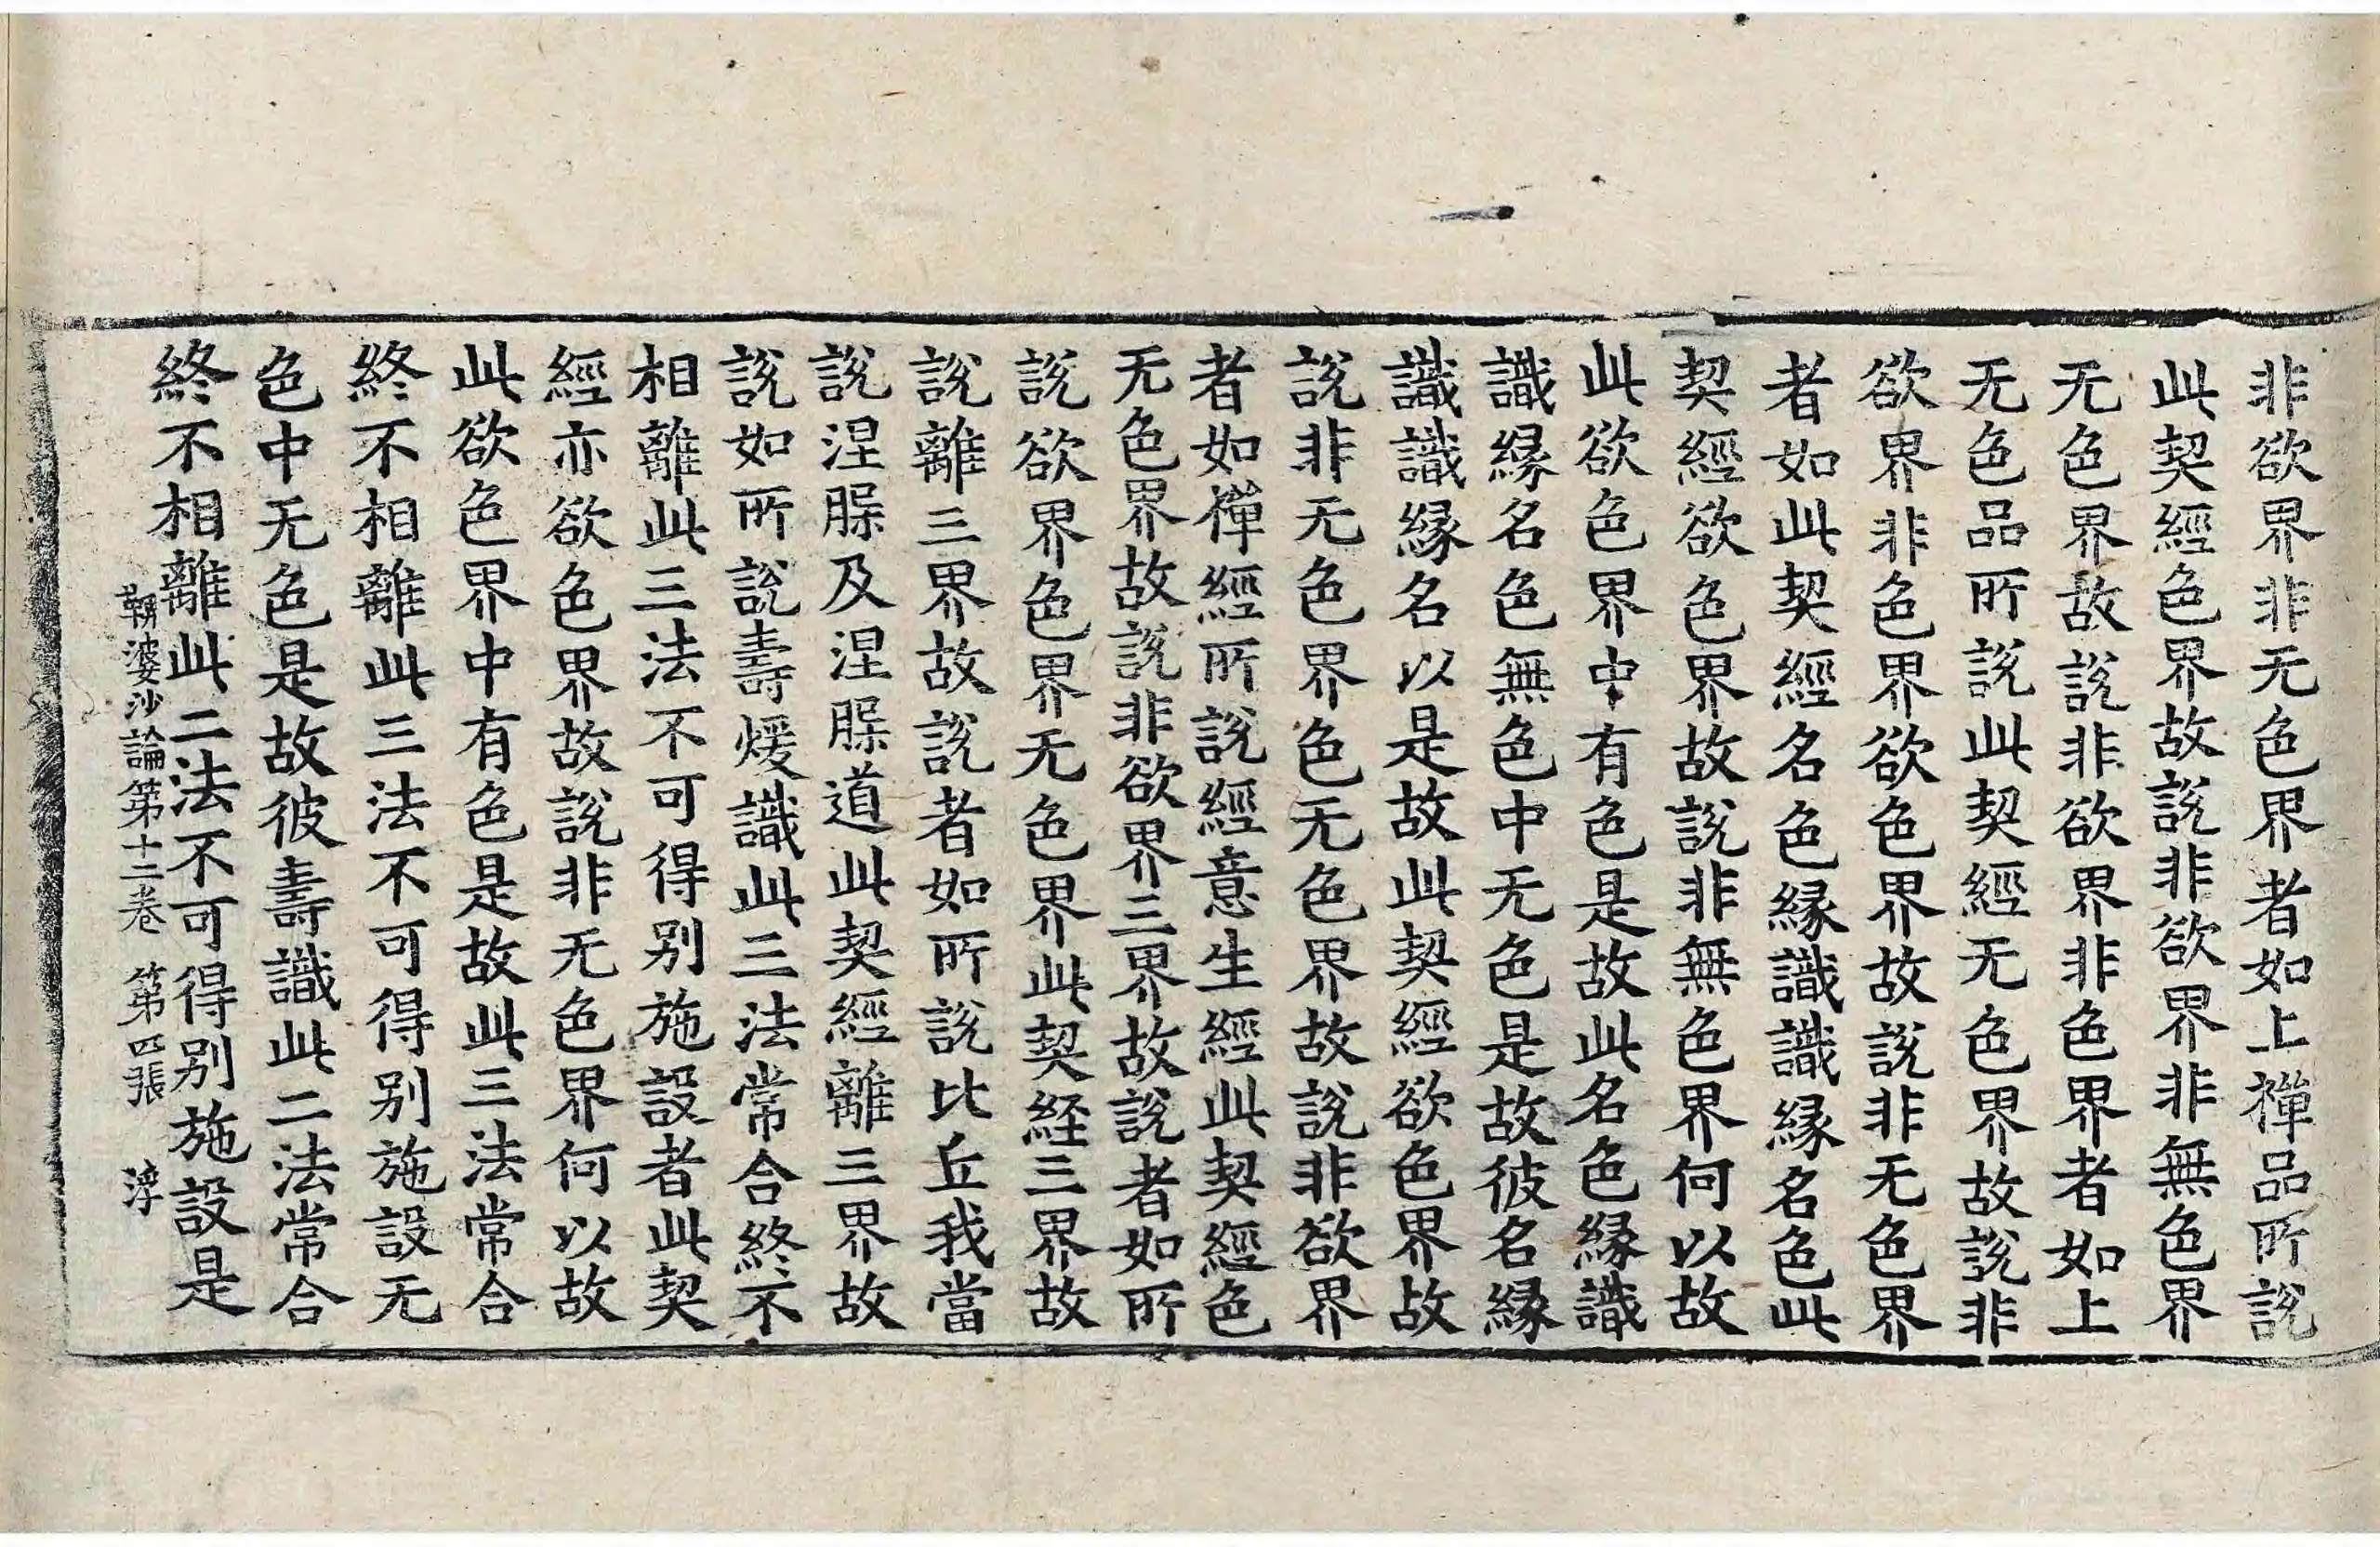 非欲界非无色界者如上禪品所説
此契經色界故説非欲界非無色界
无色界故説非欲界非色界者如上
无色品所説此契經无色界故説非
欲界非色界欲色界故説非无色界
者如此契經名色縁識識縁名色此
契經欲色界故説非無色界何以故
此欲色界中有色是故此名色縁識
識縁名色無色中无色是故彼名縁
識識縁名以是故此契經欲色界故
説非无色界色无色界故説非欲界
者如禪經所説經意生經此契經色
无色界故説非欲界三界故説者如所
説欲界色界无色界此契経三界故
説離三界故説者如所説比丘我當
説涅槃及涅槃道此契經離三界故
説如所説壽煖識此三法常合終不
相離此三法不可得别施設者此契
經亦欲色界故説非无色界何以故
此欲色界中有色是故此三法常合
終不相離此三法不可得别施設无
色中无色是故彼壽識此二法常合
終不相離此二法不可得别施設是
鞞婆沙論第十二卷 第四張 淳